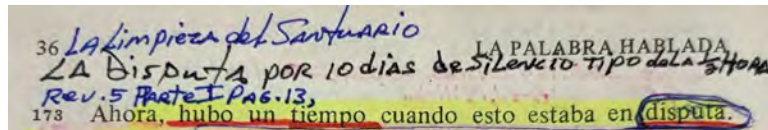 36 LA Limpieza del Santuario
LA PALABRA HABLADA
LA DISPUTA POR 10 dias de SILENCIO TIPO de LA ½ HORA
Rev. 5 PARTE I PAG. 13,
173 Ahora, hubo un tiempo cuando esto estaba en disputa.